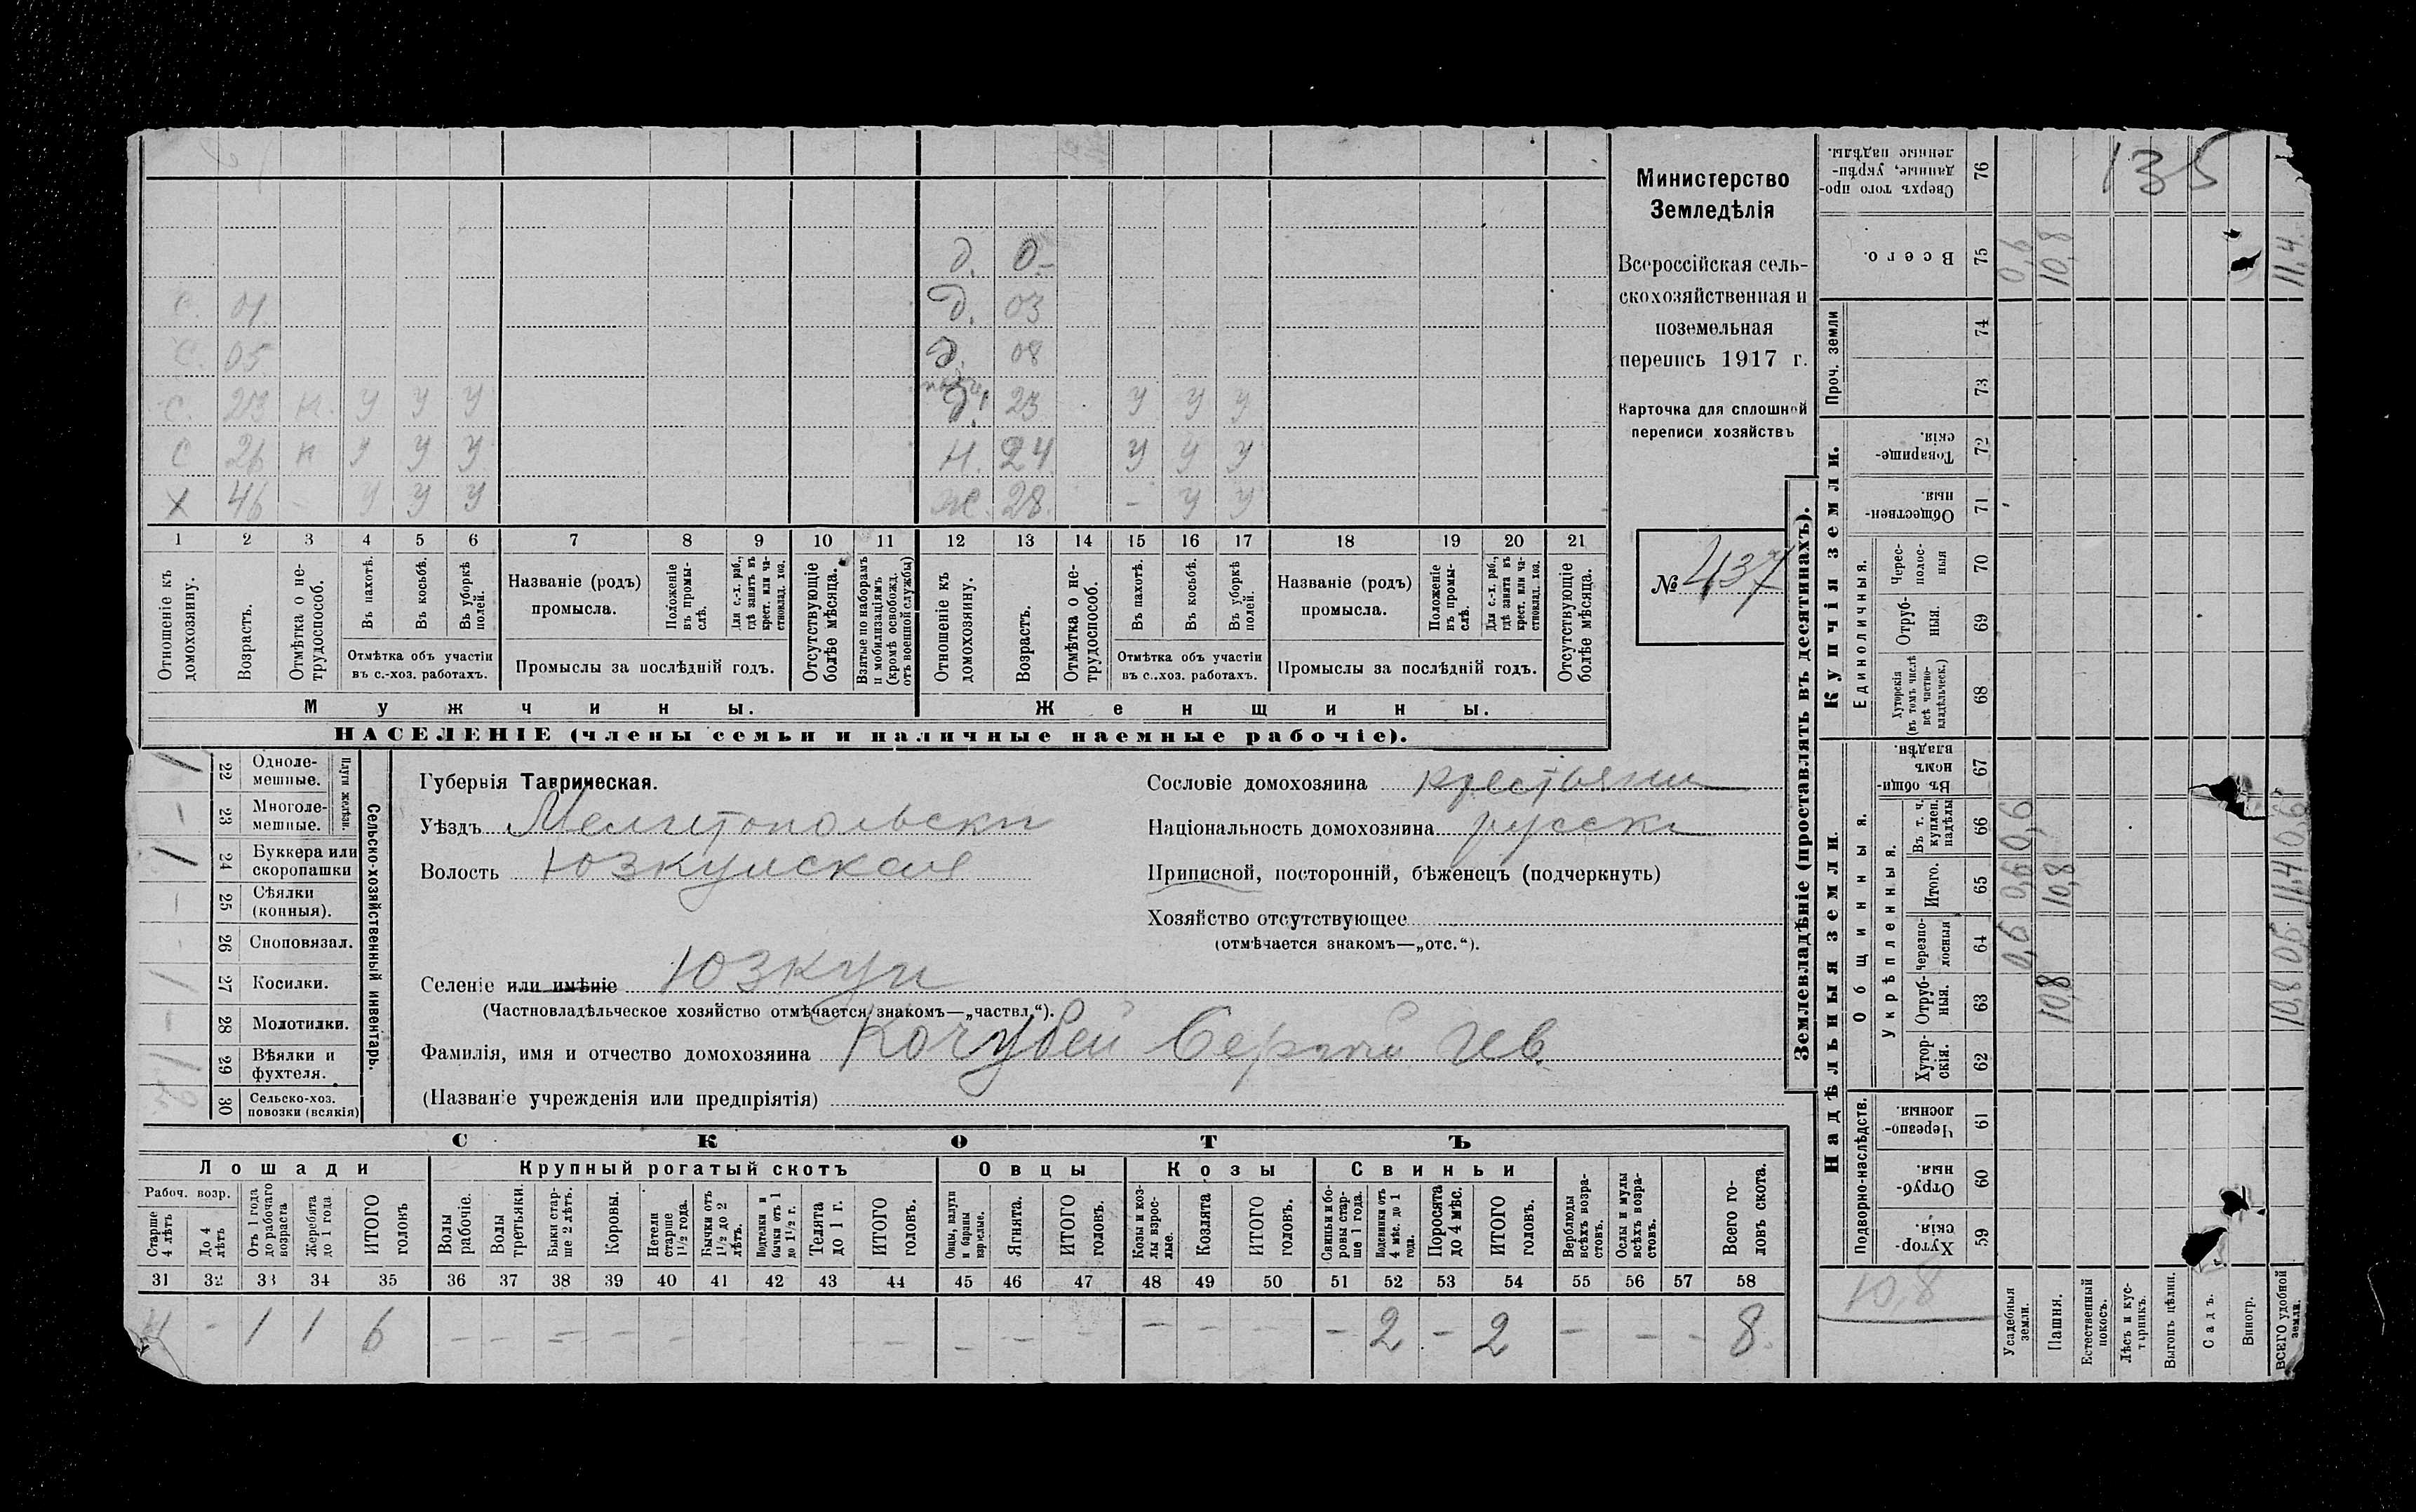 135
Министерство
Земледѣлія
Всероссійская сель-
скохозяйственная и
поземельная
перепись 1917 г.
Карточка для сплошной
переписи хозяйствъ
№ 437
д. 0.-
С. 01 д. 03
С. 05 д. 08
С. 23 н. у у у д. 23 у у у
С 26 н у у у Н. 24 у у у
х 46 - у у у ж. 28. - у у
1 2 3 4 5 6 7 8 9 10 11 12 13 14 15 16 17 18 19 20 21
Отношеніе къ домохозяину.
Возрастъ.
Отмѣтка о не-трудоспособ.
Въ пахотѣ.
Въ косьбѣ.
Въ уборкѣ полей.
Отмѣтка объ участіи
въ с.-хоз. работахъ.
Названіе (родъ)
промысла.
Положеніе въ промы-слѣ.
Для с.-х. раб., гдѣ занятъ въ крест. или ча-стновлад. хоз.
Промыслы за послѣдній годъ.
Отсутствующіе болѣе мѣсяца.
Взятые по наборамъ и мобилизаціямъ (кромѣ освобожд. отъ военной службы)
Отношеніе къ домохозяину.
Возрастъ.
Отмѣтка о не-трудоспособ.
Въ пахотѣ.
Въ косьбѣ.
Въ уборкѣ полей.
Отмѣтка объ участіи
въ с..хоз. работахъ.
Названіе (родъ)
промысла.
Положеніе въ промы-слѣ.
Для с.-х. раб., гдѣ занята въ крест. или ча-стновлад. хоз.
Промыслы за послѣдній годъ.
Отсутствующіе болѣе мѣсяца.
Мужчины.
Женщины.
НАСЕЛЕНІЕ (члены семьи и наличные наемные рабочіе).
1 22 Одноле-мешные.
- 23 Многоле-мешные.
Плуги желѣзн.
1 24 Буккера или скоропашки
- 25 Сѣялки (конныя).
- 26 Сноповязал.
1 27 Косилки.
- 28 Молотилки.
1 29 Вѣялки и фухтеля.
30 Сельско-хоз. повозки (всякія)
Сельско-хозяйственный инвентарь.
Губернія Таврическая.
Уѣздъ Мелитопольски
Волость Юзкуйская
Селеніе или имѣніе Юзкуи
(Частновладѣльческое хозяйство отмѣчается знакомъ—„частвл.“).
Фамилія, имя и отчество домохозяина Кочубей Сергѣй Ив.
(Названіе учрежденія или предпріятія)
Сословіе домохозяина крестьянин
Національность домохозяина русски
Приписной, посторонній, бѣженецъ (подчеркнуть)
Хозяйство отсутствующее
(отмѣчается знакомъ—„отс.“).
СКОТЪ
Лошади Крупный рогатый скотъ Овцы Козы Свиньи
Рабоч. возр.
Старше 4 лѣтъ
До 4 лѣтъ
Отъ 1 года до рабочаго возраста
Жеребята до 1 года
ИТОГО головъ
Волы рабочіе.
Волы третьяки.
Быки стар-ше 2 лѣтъ.
Коровы.
Нетели старше 1½ года.
Бычки отъ 1½ до 2 лѣтъ.
Подтелки и бычки отъ 1 до 1½ г.
Телята до 1 г.
ИТОГО головъ.
Овцы, валухи и бараны взрослые.
Ягнята.
ИТОГО головъ.
Козы и коз-лы взрос-лые.
Козлята
ИТОГО головъ.
Свиньи и бо-ровы стар-ше 1 года.
Подсвинки отъ 4 мѣс. до 1 года.
Поросята до 4 мѣс.
ИТОГО головъ.
Верблюды всѣхъ возра-стовъ.
Ослы и мулы всѣхъ возра-стовъ.
Всего го-ловъ скота.
31 32 33 34 35 36 37 38 39 40 41 42 43 44 45 46 47 48 49 50 51 52 53 54 55 56 57 58
4 - 1 1 6 - - - - - - - - - - - - - - - - 2 - 2 - - - 8.
Землевладѣніе (проставлять въ десятинахъ).
Купчія земли.
Надѣльныя земли.
Сверхъ того про-данные, укрѣп-ленные надѣлы. 76
Всего. 75 0,6 10,8 11,4
Проч. земли 74 73
Товарище-скія. 72
Обществен-ныя. 71
Единоличныя.
Черес-полос-ныя 70
Отруб-ныя. 69
Хуторскія (въ томъ числѣ всѣ частно-владѣльческ.) 68
Общинныя.
Въ общин-номъ владѣн. 67
Укрѣпленныя.
Въ т. ч. куплен. надѣлы 66 0,6 0,6
Итого. 65 0,6 10,8 11,4
Черезпо-лосныя 64 0,6 0,6
Отруб-ныя. 63 10,8 10,8
Хутор-скія. 62
Подворно-наслѣдств.
Черезпо-лосныя. 61
Отруб-ныя. 60
Хутор-скія. 59
10,8
Усадебныя земли.
Пашня.
Естественный покосъ.
Лѣсъ и кус-тарникъ.
Выгонъ цѣлин.
Садъ.
Виногр.
ВСЕГО удобной земли.